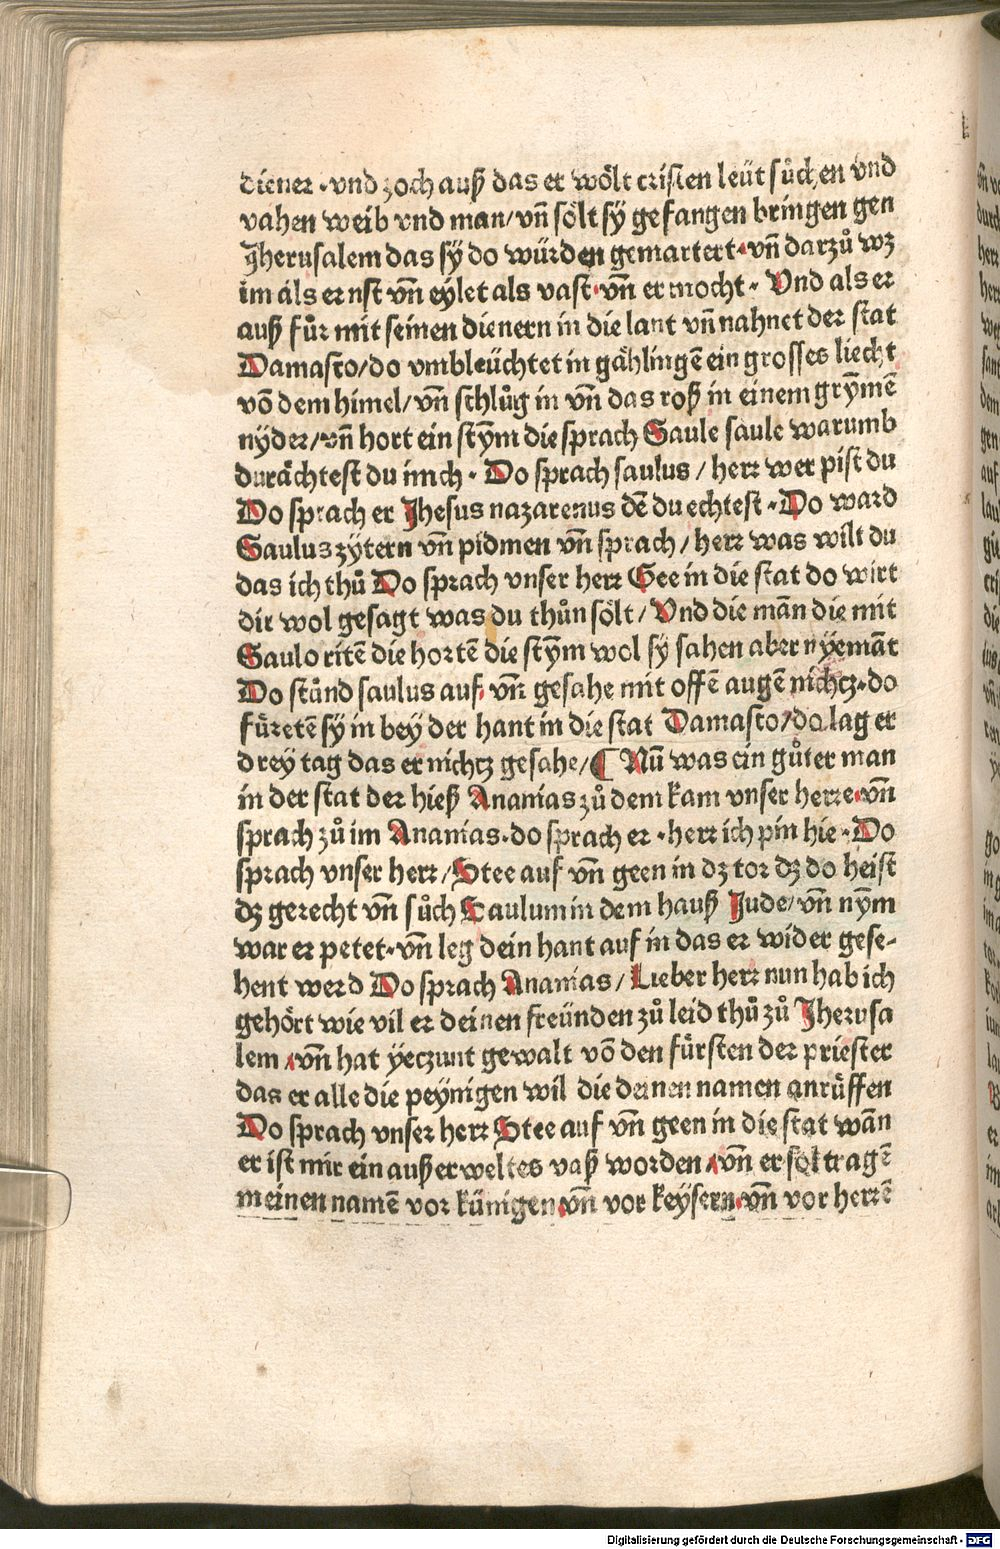 diener · vnd zoch auß das er wölt cristen leüt sůchen vnd
vahen weib vnd man/ vn̄ sölt sÿ gefangen bringen gen
Jherusalem das sÿ do würden gemartert · vn̄ darzů wz
im als ernst vn̄ eylet als vast · vn̄ er mocht · Vnd als er
auß fůr mit seinen dienern in die lant vn̄ nahnet der stat
Damasco/ do vmbleüchtet in gählingē ein grosses liecht
vō dem himel/ vn̄ schlůg in vn̄ das roß in einem grȳmē
nÿder/ vn̄ hort ein stȳm die sprach Saule saule warumb
durächtest du mich · Do sprach saulus / herr wer pist du
Do sprach er Jhesus nazarenus dē du echtest · Do ward
Saulus zytern vn̄ pidmen vn̄ sprach / herr was wilt du
das ich thů Do sprach vnser herr Gee in die stat do wirt
dir wol gesagt was du thůn sölt / Vnd die man die mit
Saulo ritē die hortē die stȳm wol sÿ sahen aber nyemāt
Do stůnd saulus auf · vn̄ gesahe mit offē augē nichcz · do
fůretē sÿ in bey der hant in die stat Damasco/ do lag er
drey tag das er nichcz gesahe/ ¶ Nū was ein gůter man
in der stat der hieß Ananias zů dem kam vnser herre · vn̄
sprach zů im Ananias · do sprach er · herr ich pin hie · Do
sprach vnser herr / Stee auf vn̄ geen in dz tor dz do heist
dz gerecht vn̄ sůch Saulum in dem hauß Jude/ vn̄ nȳm
war er petet · vn̄ leg dein hant auf in das er wider gese-
hent werd Do sprach Ananias / Lieber herr nun hab ich
gehört wie vil er deinen freünden zů leid thů zů Jherusa
lem / vn̄ hat yeczunt gewalt vō den fürsten der priester
das er alle die peynigen wil die deinen namen anrůffen
Do sprach vnser herr Stee auf vn̄ geen in die stat wān
er ist mir ein außerweltes vaß worden / vn̄ er sol tragē
meinen namē vor künigen · vn̄ vor keysern · vn̄ vor herrē
Digitalisierung gefördert durch die Deutsche Forschungsgemeinschaft - DFG